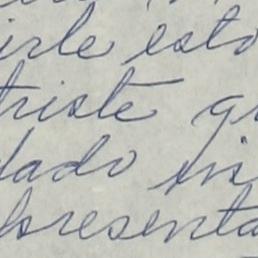 irle esto
triste qu
dado sin
presenta